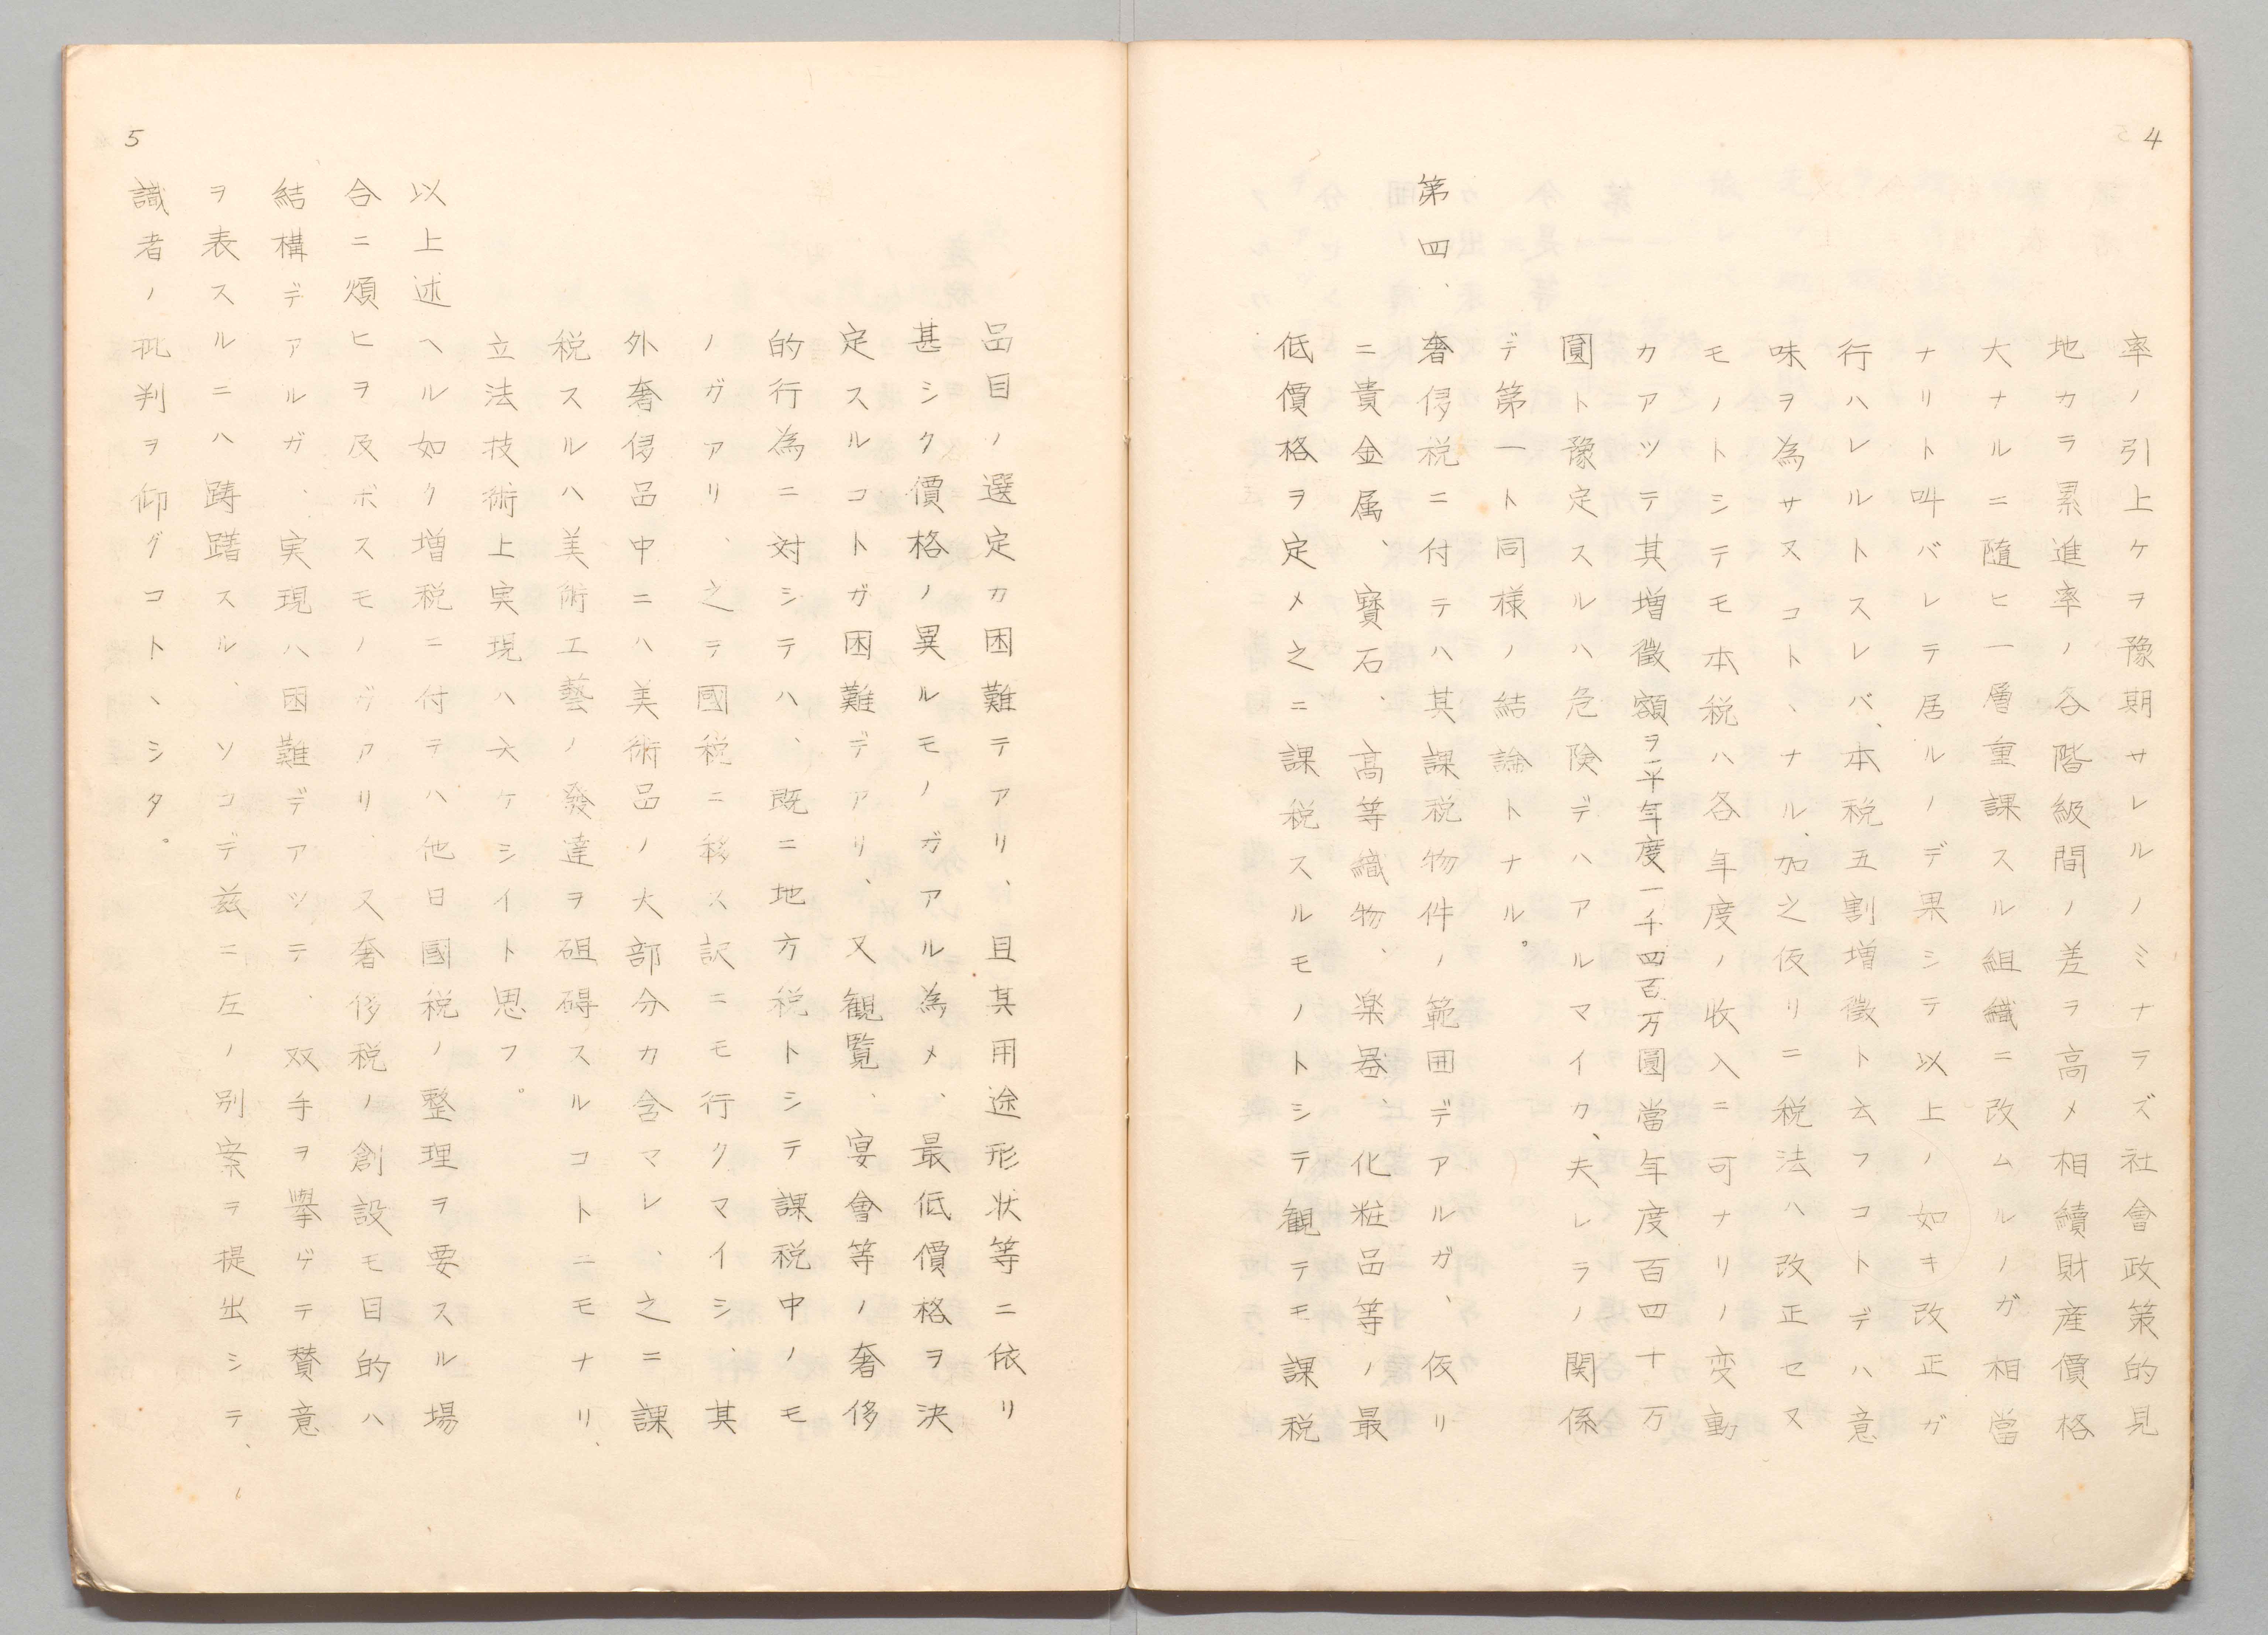 4
率ノ引上ケヲ豫期サレルノミナラズ社會政策的見
地カラ累進率ノ各階級間ノ差ヲ高メ相續財産價格
大ナルニ隨ヒ一層重課スル組織ニ改ムルノガ相當
ナリト叫バレテ居ルノデ果シテ以上ノ如キ改正ガ
行ハレルトスレバ、本税五割増徴ト云フコトデハ意
味ヲ為サヌコトヽナル、加之仮リニ税法ハ改正セヌ
モノトシテモ本税ハ各年度ノ收入ニ可ナリノ変動
カアツテ其増徴額ヲ平年度一千四百万圓當年度百四十万
圓ト豫定スルハ危険デハアルマイカ、夫レラノ関係
デ第一ト同様ノ結論トナル。
第四、奢侈税ニ付テハ其課税物件ノ範囲デアルガ、仮リ
ニ貴金属、寳石、高等織物、楽器、化粧品等ノ最
低價格ヲ定メ之ニ課税スルモノトシテ観テモ課税
5
品目ノ選定カ困難テアリ、且其用途形状等ニ依リ
甚シク價格ノ異ルモノガアル為メ、最低價格ヲ決
定スルコトガ困難デアリ、又観覧、宴會等ノ奢侈
的行為ニ対シテハ、既ニ地方税トシテ課税中ノモ
ノガアリ、之ヲ國税ニ移ス訳ニモ行クマイシ、其
外奢侈品中ニハ美術品ノ大部分カ含マレ、之ニ課
税スルハ美術工藝ノ發達ヲ砠碍スルコトニモナリ、
立法技術上実現ハ六ケシイト思フ。
以上述ヘル如ク増税ニ付テハ他日國税ノ整理ヲ要スル場
合ニ煩ヒヲ及ボスモノガアリ、又奢侈税ノ創設モ目的ハ
結構デアルガ、実現ハ困難デアツテ、双手ヲ擧ゲテ賛意
ヲ表スルニハ躊躇スル、ソコデ茲ニ左ノ別案ヲ提出シテ、
識者ノ批判ヲ仰グコトヽシタ。